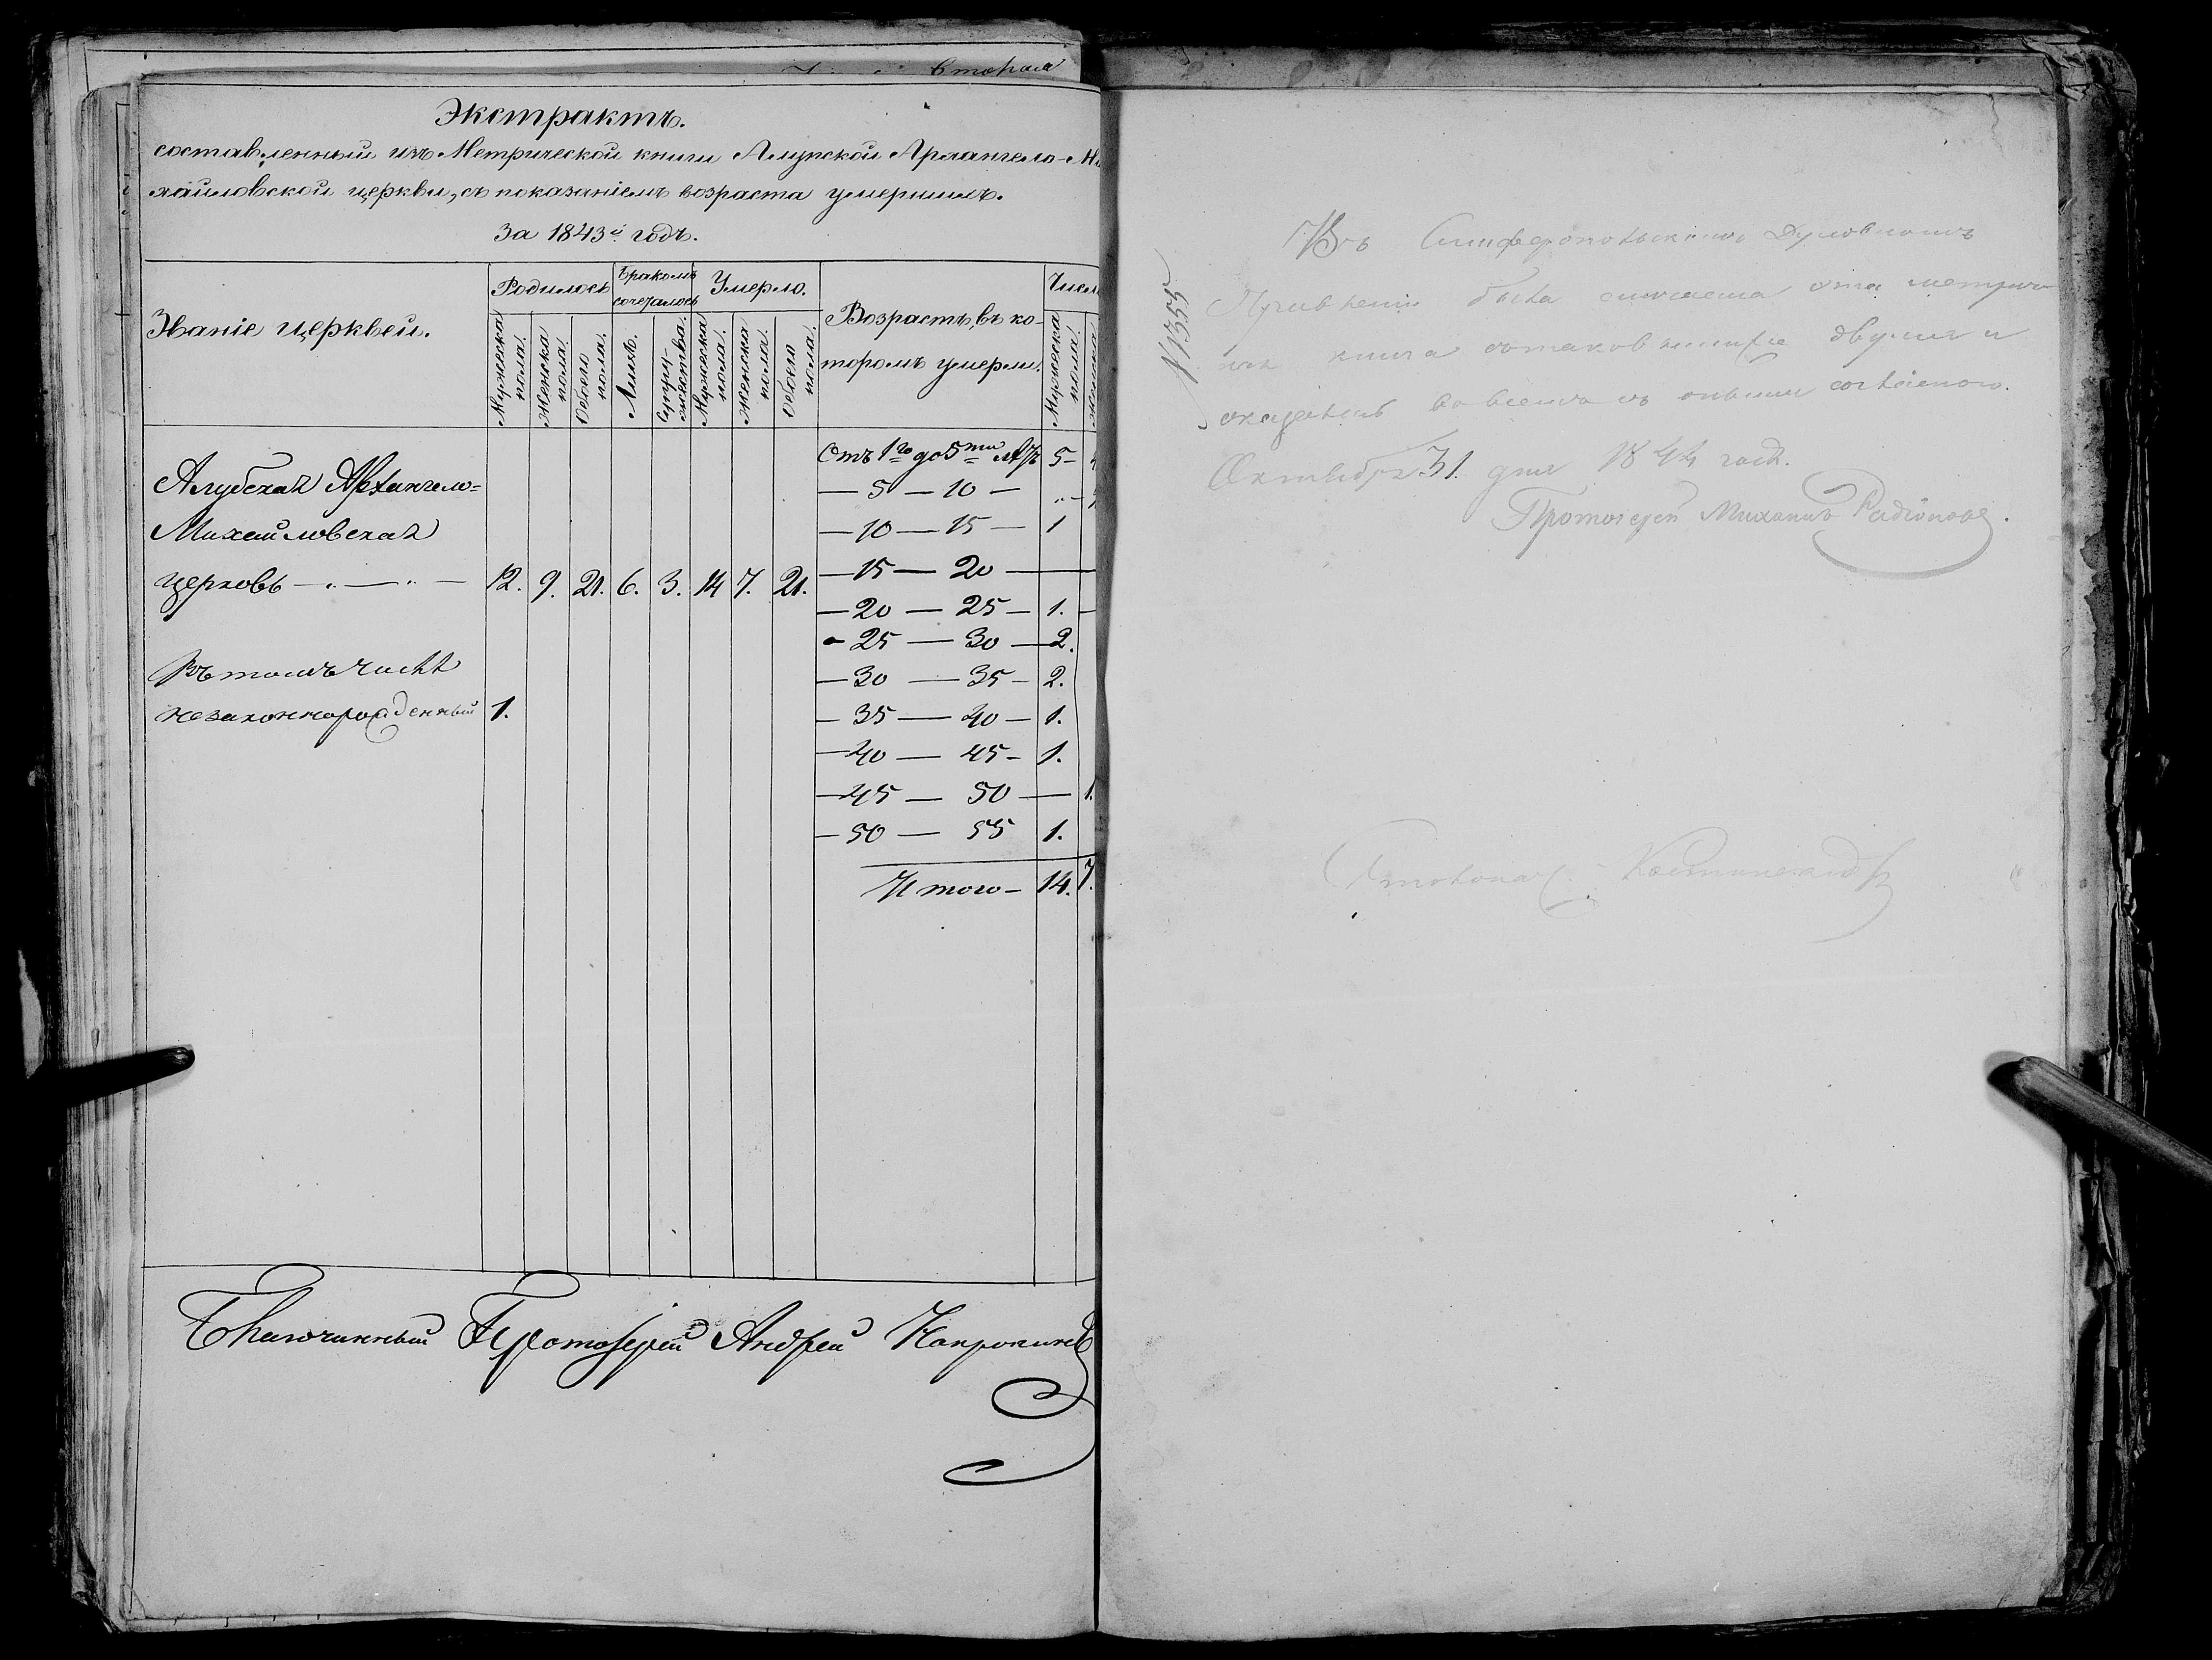 Вторая
Экстрактъ.
составленный изъ Метрической книги Алупской Архангело-Ми
хайловской церкви, съ показаніемъ возраста умершихъ.
За 1843й годъ.
Званіе церквей.
Родилось
Бракомъ сочеталось
Умерло.
Возрастъ, въ ко-
торомъ умерли.
Число
Мужеска пола.
Женска пола.
Обоего пола.
Лицъ.
Супружества.
Мужеска пола.
Женска пола.
Обоего пола.
Мужеска пола.
Отъ 1го до 5ти лѣтъ 5-
Алубская Архангело=
— 5 — 10 — „ —
Михайловская
— 10 — 15 — 1
церковь — „ — „ — 12. 9. 21. 6. 3. 14 7. 21.
— 15 — 20 —
— 20 — 25 — 1. —
- 25 — 30 — 2.
Въ томъ числѣ
— 30 — 35 - 2.
незаконнорожденный 1.
— 35 — 40 — 1.
— 40 — 45 - 1.
— 45 — 50 — 1.
— 50 — 55 1.
Итого — 14. 7.
Благочинный Протоіерей Андрей
N 1355
Въ Симферопольскомъ Духовномъ
Правленіи была сличаема эта метриче
ская книга съ таковыми же двумя и
оказалась во всемъ съ оными согласною.
Октября 31. дня 1844 года.
Протоіерей Михаилъ Радіоновъ.